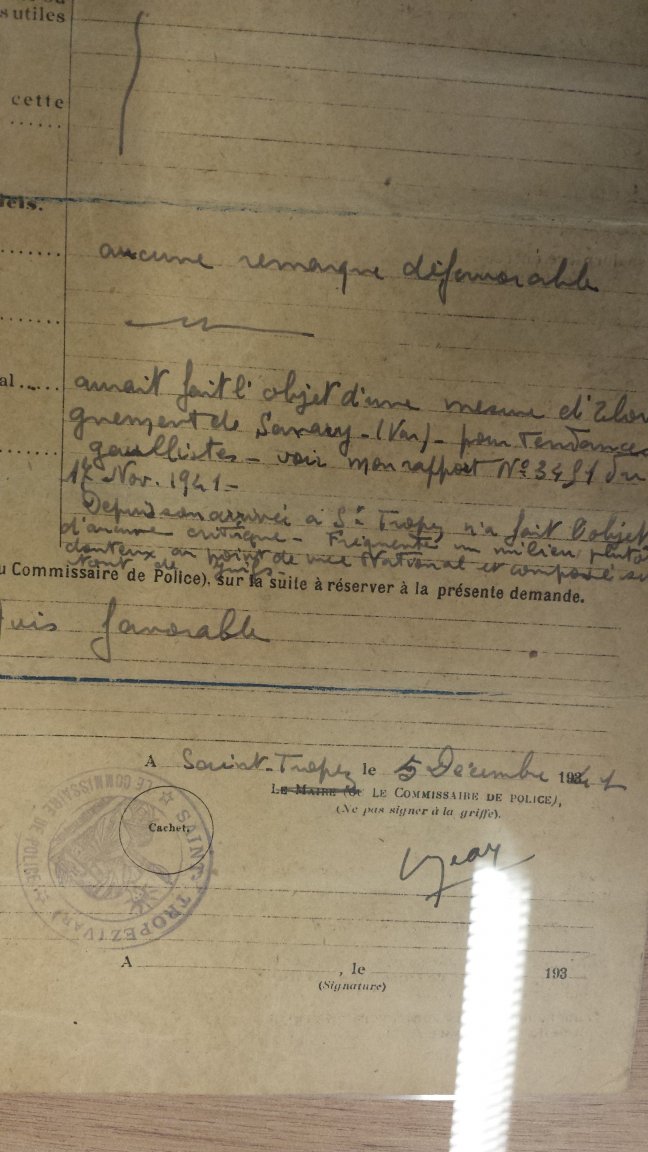 s utiles
cette
......
iels.
......
aucune remarque défavorable
......
al......
aurait fait l'objet d'une mesure d'éloi
gnement de Sanary - (Var) - pour tendances
......
gaullistes - voir mon rapport N° 3491 du
17 Nov. 1941 -
Depuis son arrivée à St Tropez n'a fait l'objet
d'aucune critique - Fréquente un milieu plutôt
douteux au point de vue National et composé su
tout de Juifs.
u Commissaire de Police), sur la suite à réserver à la présente demande.
Avis favorable
A Saint-Tropez le 5 Décembre 1941
LE MAIRE (ou LE COMMISSAIRE DE POLICE),
(Ne pas signer à la griffe).
Cachet.
LE COMMISSAIRE DE POLICE ☆ SAINT-TROPEZ (VAR) ☆
A , le 193
(Signature)